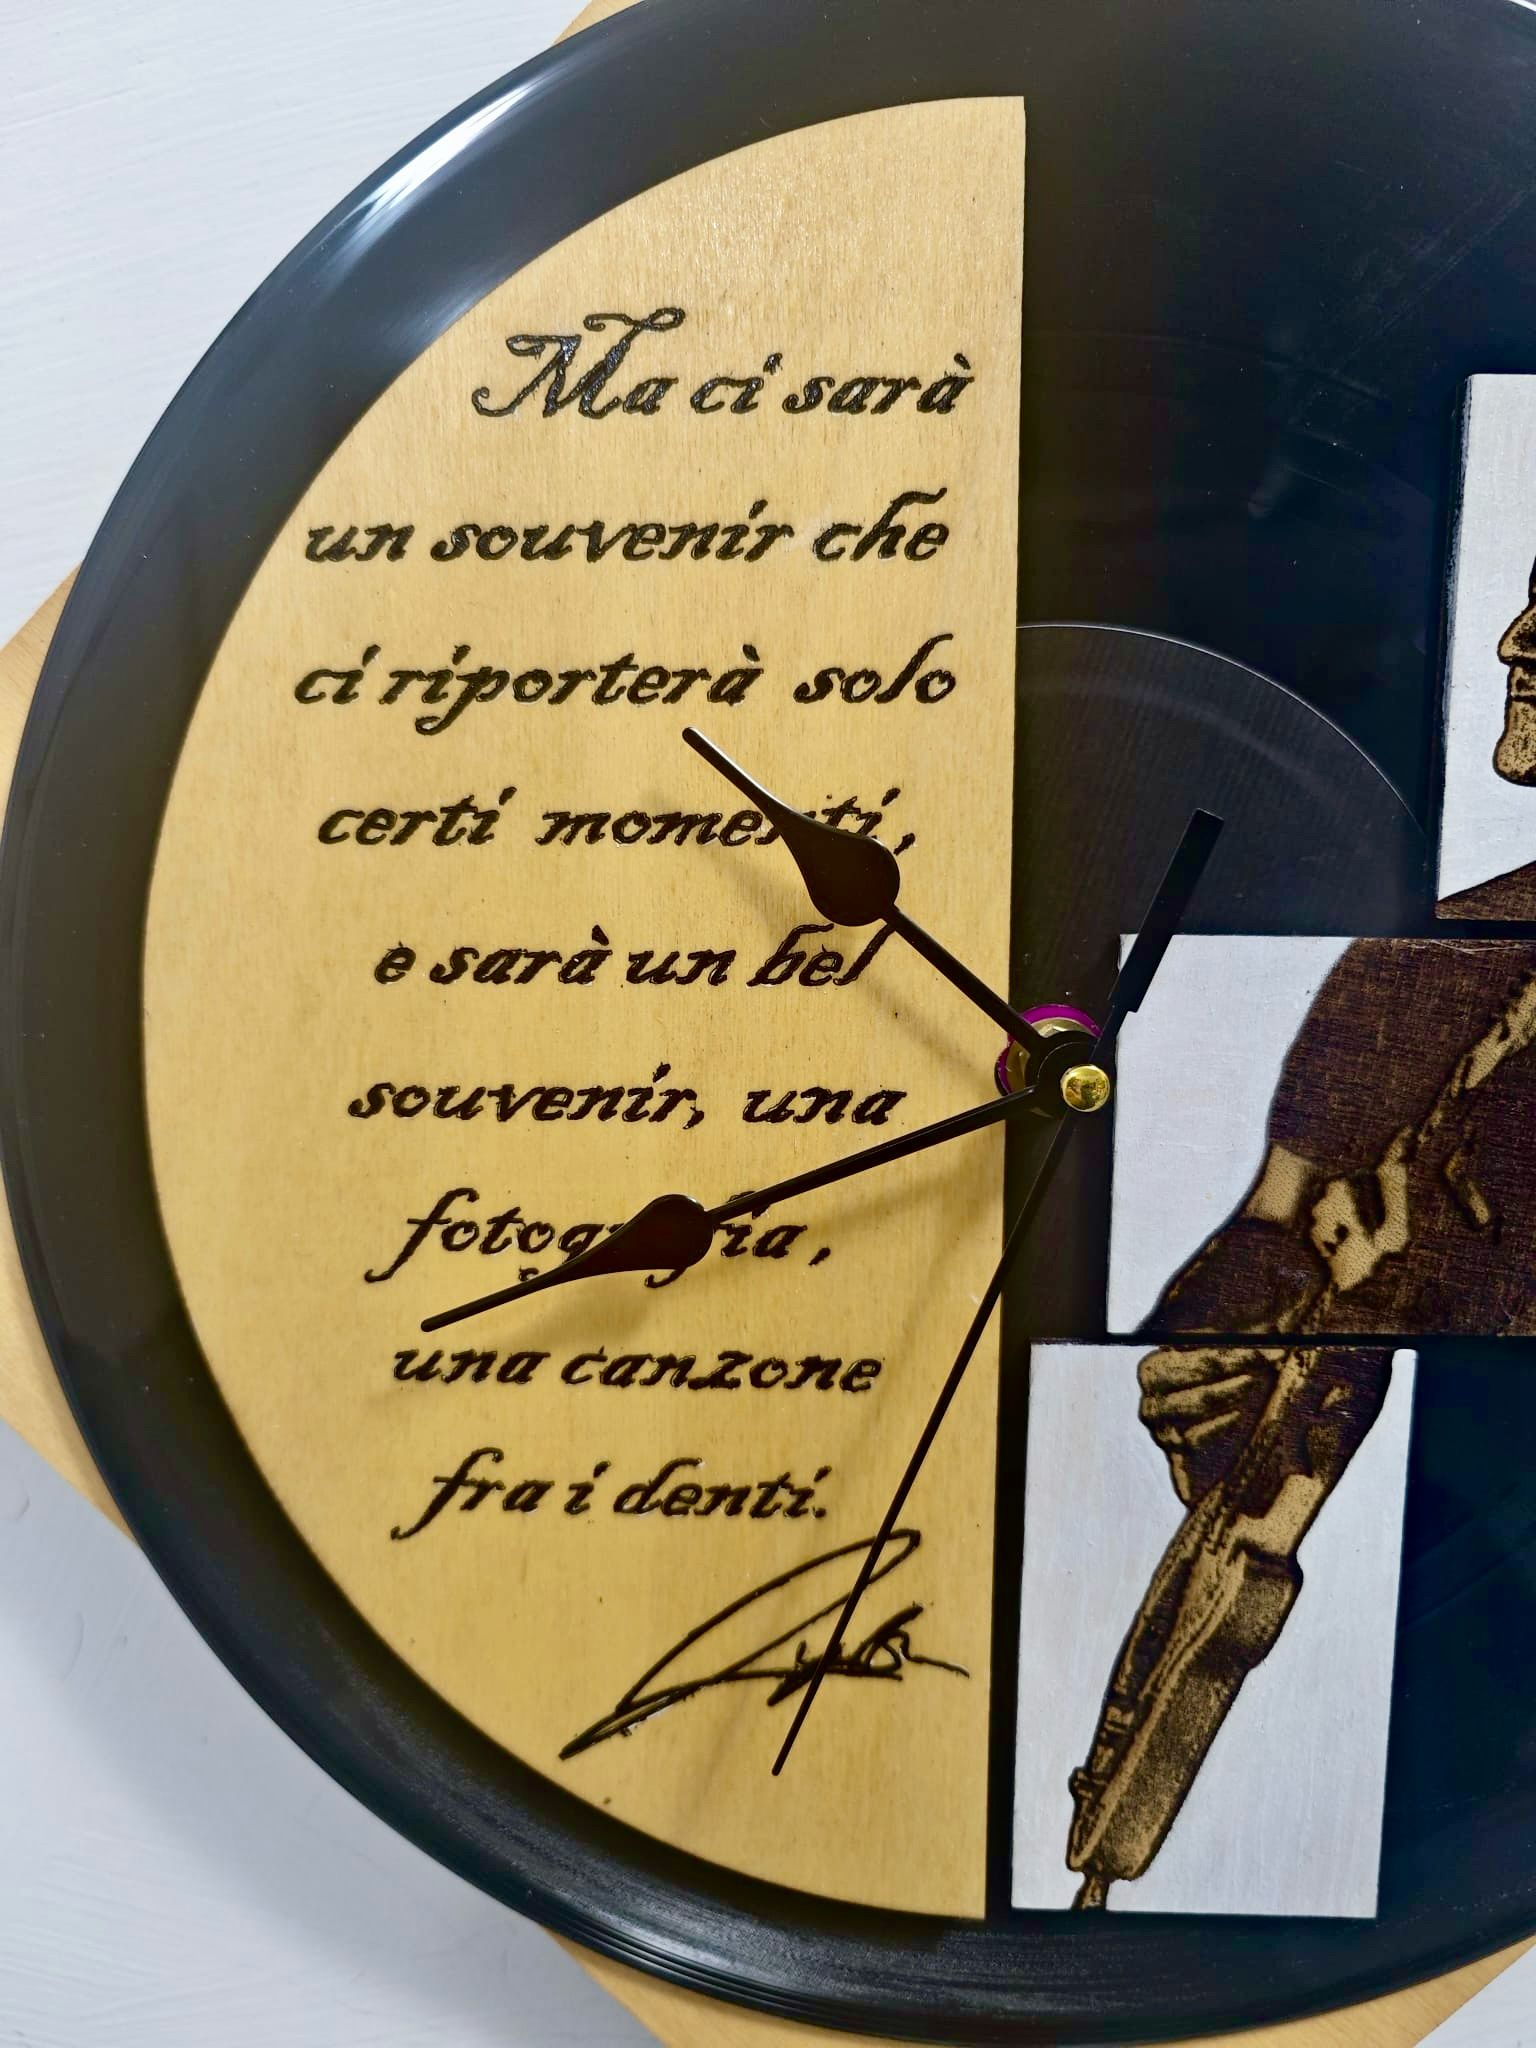 Ma ci sarà
un souvenir che
ci riporterà solo
certi momenti,
e sarà un bel
souvenir, una
fotografia,
una canzone
fra i denti.